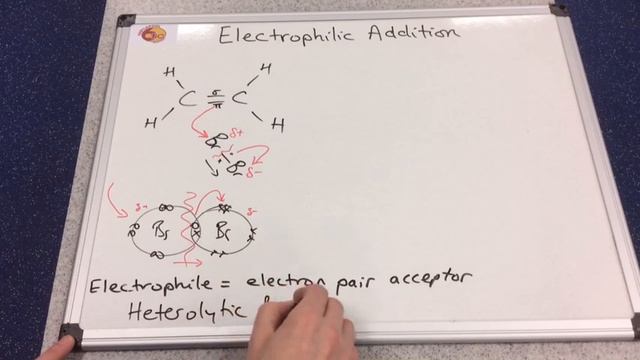 Electrophilic Addition
H H
C σ C
π
H H
Br δ+
Br δ-
δ+ δ-
Br Br
Electrophile = electron pair acceptor
Heterolytic